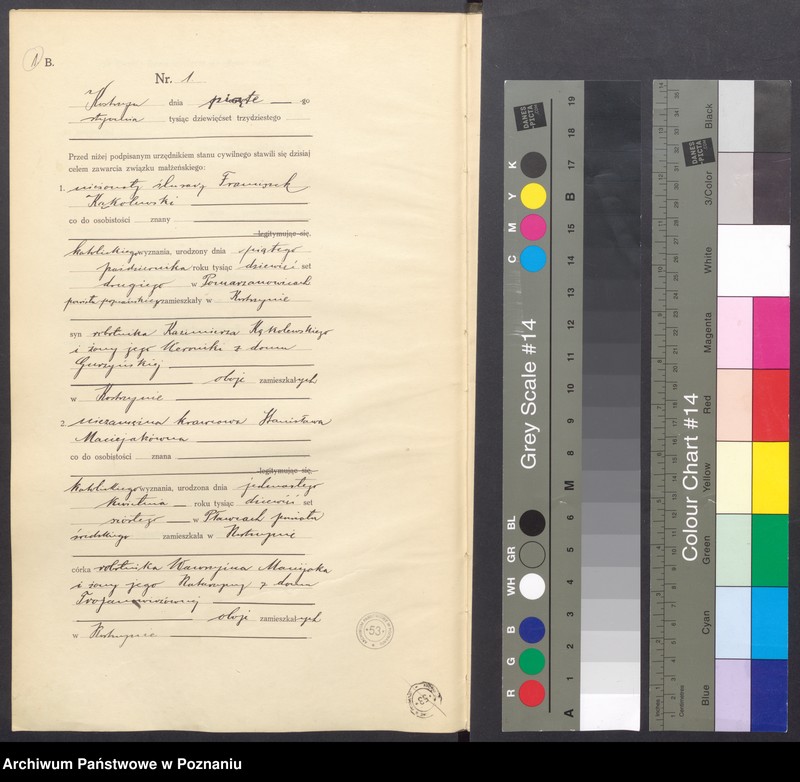 1 B.
Nr. 1
Kostrzyn dnia piąte go
stycznia tysiąc dziewięćset trzydziestego
Przed niżej podpisanym urzędnikiem stanu cywilnego stawili się dzisiaj
celem zawarcia związku małżeńskiego:
1. nieżonaty ślusarz Franciszek
Kąkolewski
co do osobistości znany
legitymując się,
katolickiego wyznania, urodzony dnia piątego
października roku tysiąc dziewięć set
drugiego w Pomarzanowicach
powiatu poznańskiego zamieszkały w Kostrzynie
syn robotnika Kazimierza Kąkolewskiego
i żony jego Weroniki z domu
oboje zamieszkałych
w Kostrzynie
2. niezamężna krawcowa Stanisława
Maciejakówna
co do osobistości znana
legitymując się,
katolickiego wyznania, urodzona dnia jedenastego
kwietnia roku tysiąc dziewięć set
szóstego w Pławcach powiatu
średzkiego zamieszkała w Kostrzynie
córka robotnika Wawrzyńca Maciejaka
i żony jego Katarzyny z domu
Trojanowiczównej
oboje zamieszkałych
w Kostrzynie
53
53
DANES
PICTA
.COM
Grey Scale #14
R G B WH GR BL C M Y K
A 1 2 3 4 5 6 M 8 9 10 11 12 13 14 15 B 17 18 19
DANES
PICTA
.COM
Colour Chart #14
Blue Cyan Green Yellow Red Magenta White 3/Color Black
Inches
Centimetres
Archiwum Państwowe w Poznaniu